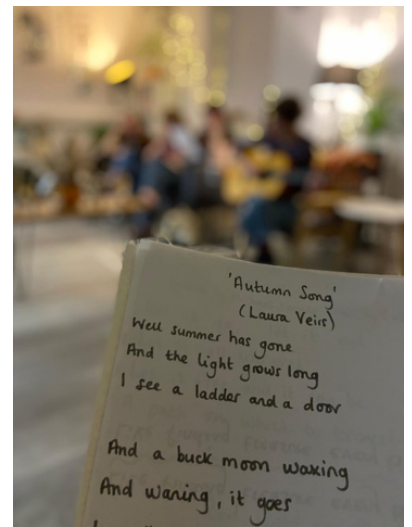 'Autumn Song'
(Laura Veirs)
Well summer has gone
And the light grows long
I see a ladder and a door
And a buck moon waxing
And waning, it goes